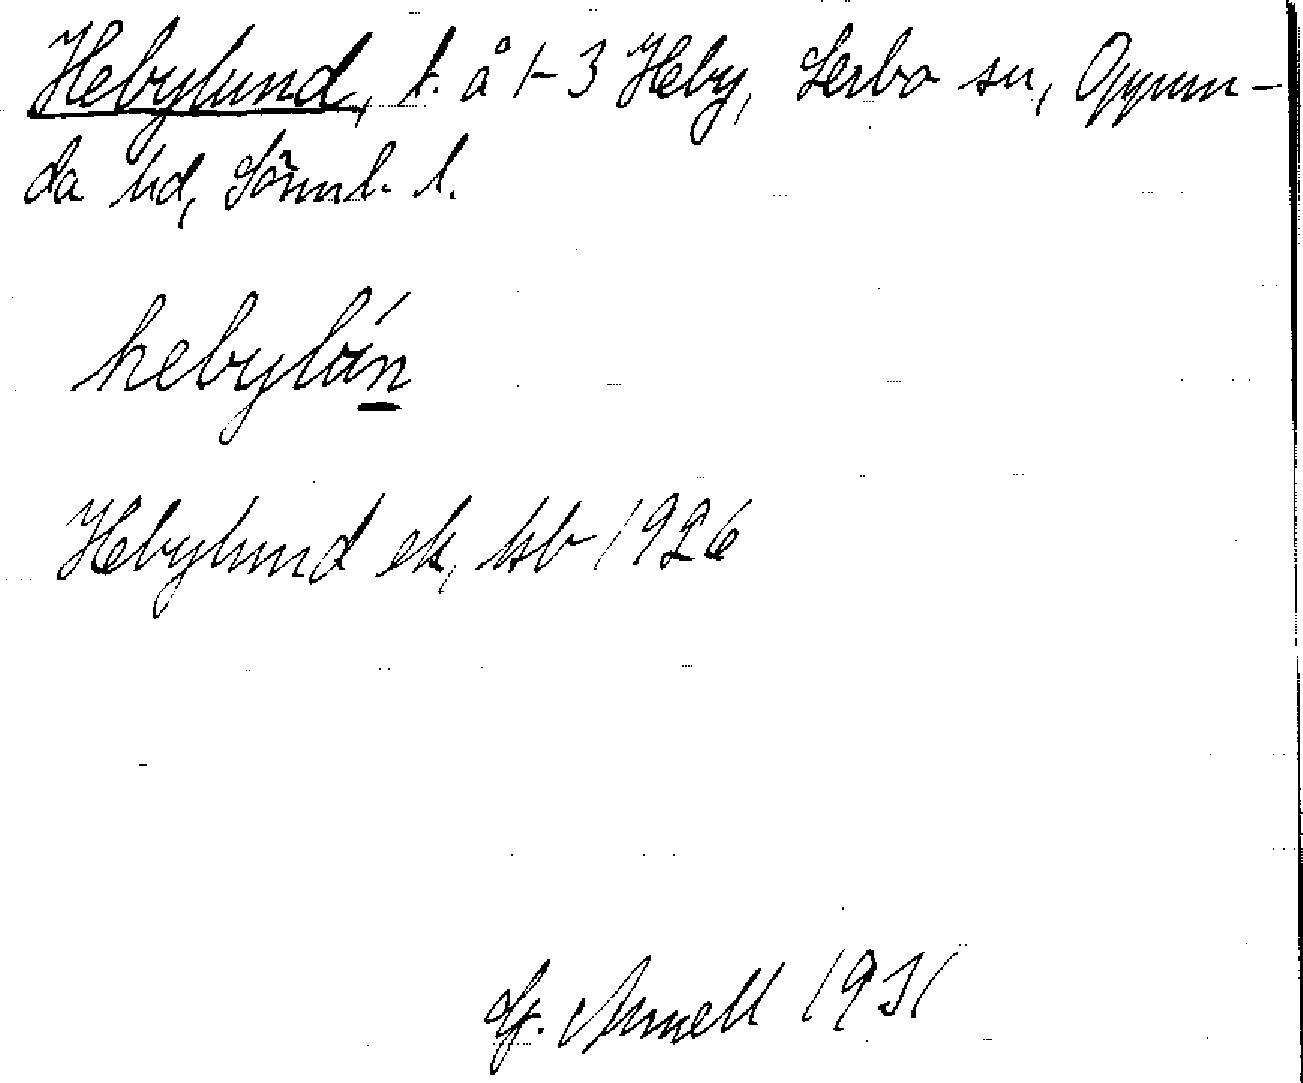 Hebylund, t. å 1-3 Heby, Lerbo sn, Oppun-
da hd, Sörml. l.
hebylún
Hebylund ek, hsb 1926
1931